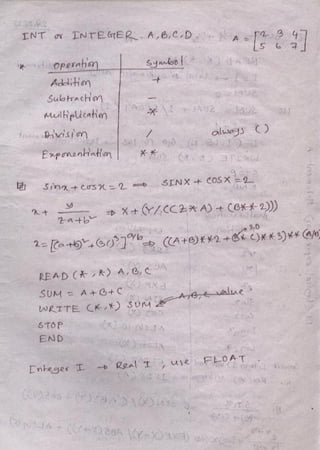 INT or INTEGER. A, B, C, D. A = [2 3 4
5 6 7]
* operation Symbol
Addition +
Subtraction −
Multiplication *
Division / always ()
Exponentiation **
sinx + cosx = 2 ⇒ SINX + COSX = 2
x + y/(za+b²) ⇒ X + (Y/((Z*A) + (B**2)))
x = [(a+b)² + (bc)³]^a/b ⇒ ((A+B)**2 + (B*C)**3)**(A/B)
READ (*,*) A, B, C
SUM = A+B+C
WRITE (*,*) SUM A, B, C value
STOP
END
Integer I → Real I, use FLOAT.